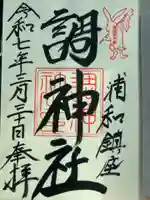 浦和鎮座
調神社
令和七年三月三十日奉拝